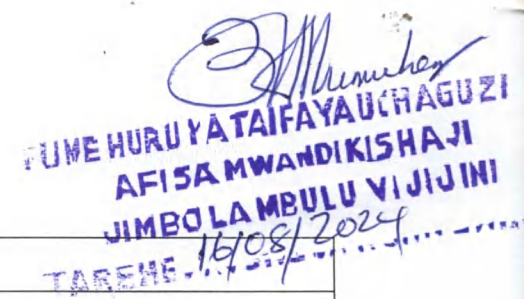 TUME HURU YA TAIFA YA UCHAGUZI
AFISA MWANDIKISHAJI
JIMBO LA MBULU VIJIJINI
TAREHE 16/08/2024